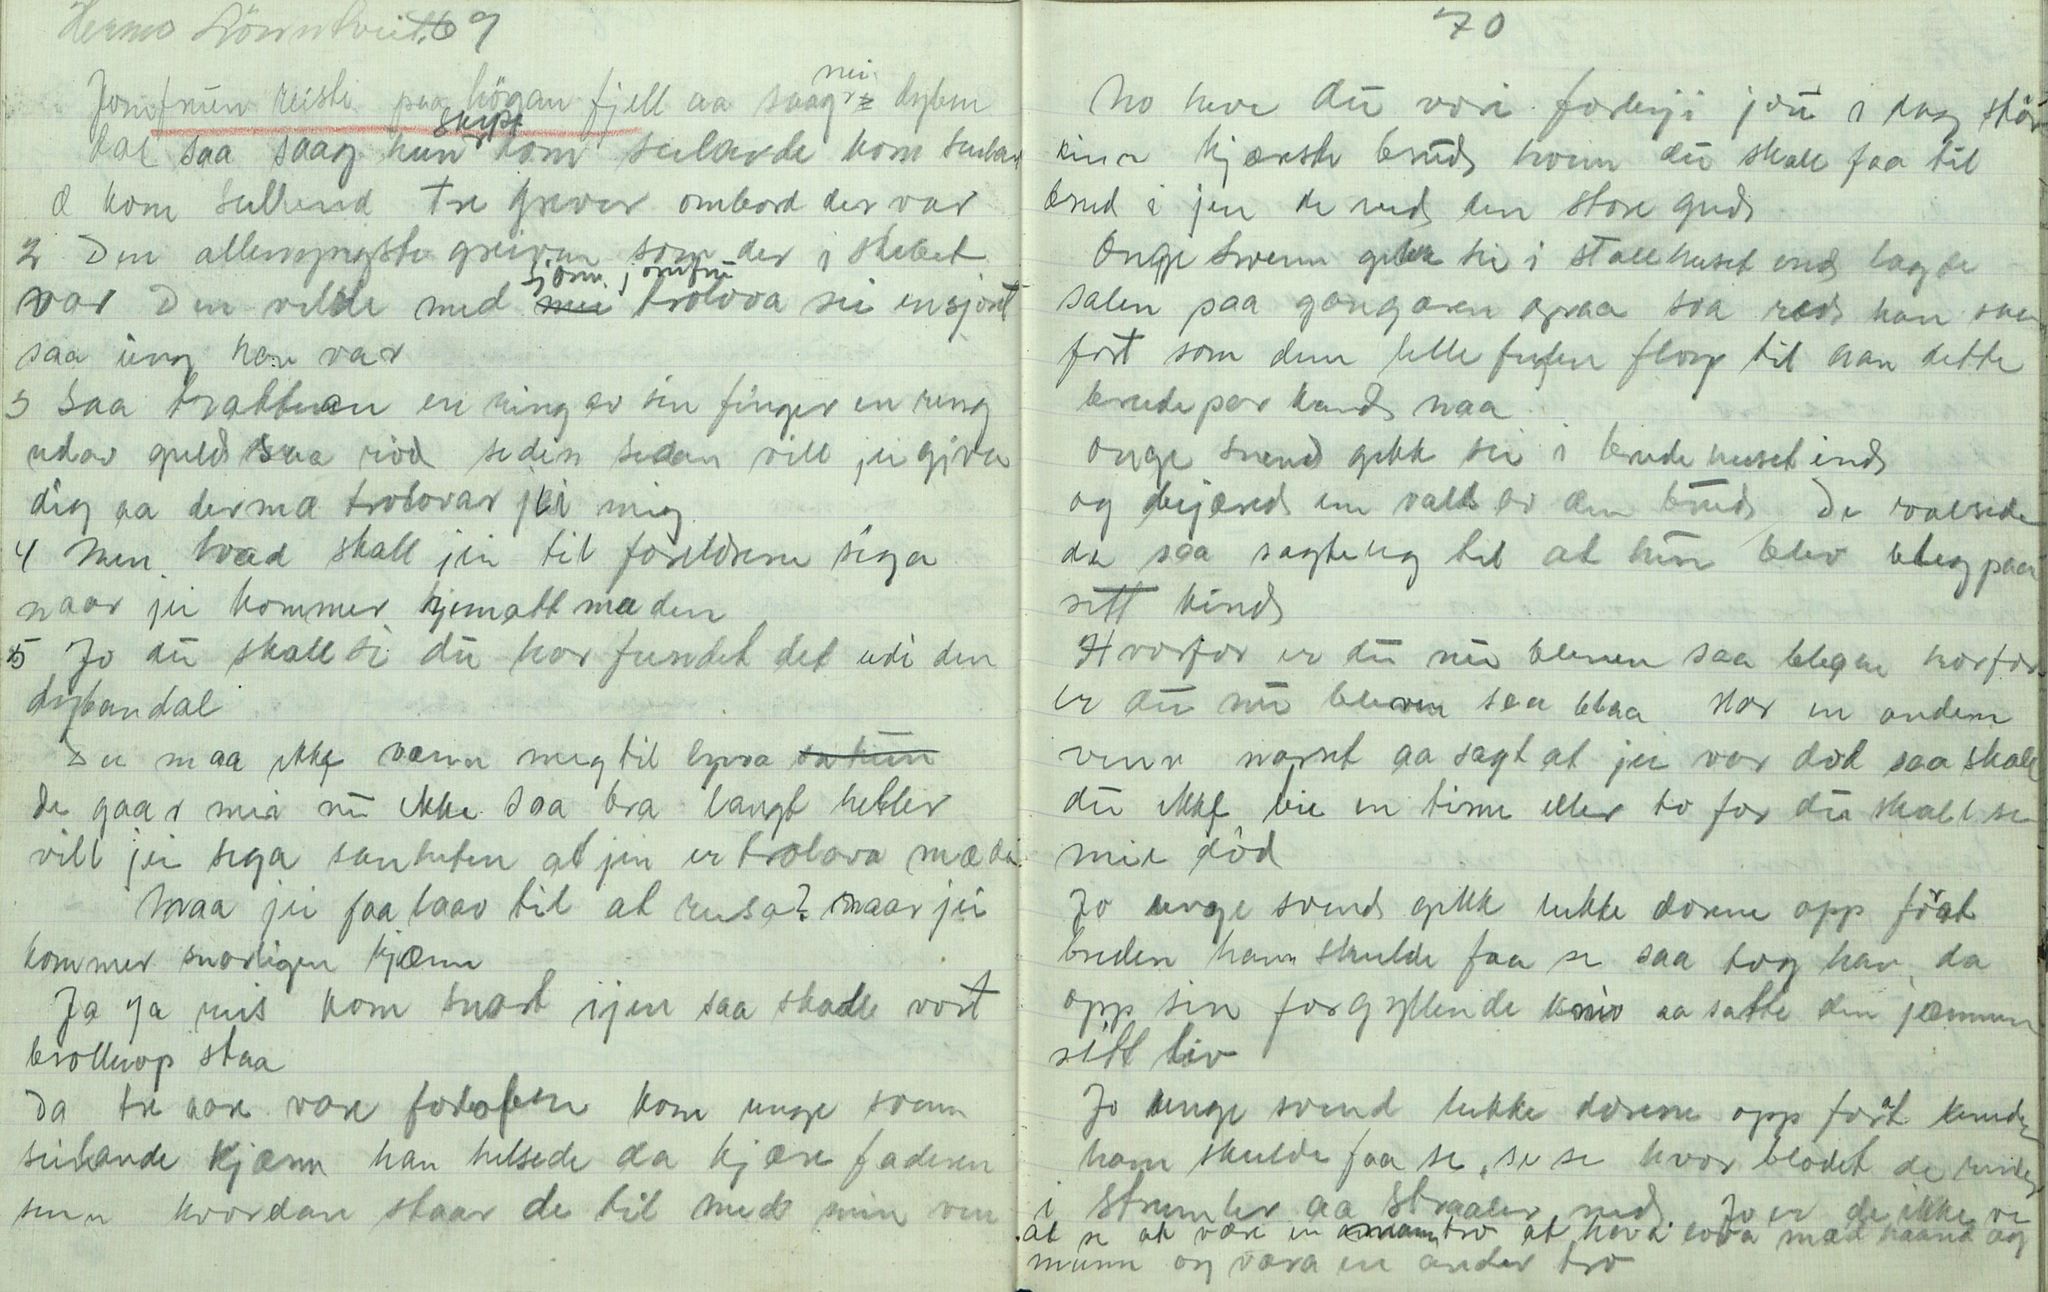 Hermo Lönntveit. 69
Jomfruen reiste paa högan fjell aa saag nei dyben
dal saa saag hun skipe kom seilande kom seilan
d kom seilend tre grever ombord der var
2 Den allemyngste greiven som der i skebet
var Den vilde med jom jomfru trolova sei ensjönt
saa ung han var
3 Saa trakte han en ring av sin finger en ring
udav guld saa röd seden sedan vill jei givu
dig aa derma trolovar jei mig
4 Men hvad skall jei til foreldrene siga
naar jei kommer hjematt maden
5 Jo du skall si du har fundet det udi den
dybandal
Du maa ikke venn meg til lyva sa hun
de gaar meia nu ikke saa bra langt heller
vill jei siga sanheten at jei er trolova mæ dei
Maa jei faa laav til at reisa? naar jei
kommer snarligen hjæm
Ja ja reis kom snart ijen saa skall vort
brollup staa
Da tre aare vare forloben kom unge svenn
seilande hjæm han helsede da kjære faderen
sinn hvordan staar de til med min ven
70
No heve du vore forleiji jou i dag stær
kjære bruds honn du skall faa til
brud i jen de veds den store guds
Unge Svenn gikk sei i stallhuset inds lagde
salen paa gangaren graa saa reds han saa
fort som den lille fuglen flog til han dette
brudepar kunds naa
Unge svends gikk sei i brudehuset inds
og beijæreds en vals av den bruds De valsede
da saa sagtelig til at hun blev bleg paa
sitt kinds
Hvorfor er du nu bleven saa blegne horfor
er du nu bleven saa blaa Har en anden
venn narret aa sagt at jei var död saa skall
du ikke bie en time eller to for du skall se
mei död
Jo unge svends gikk lukke dorene opp föråt
bruden ham skulde faa se saa tog han da
opp sin forgyllende kniv aa satte den jæmmen
sitt liv
Jo unge svend lukke dorene opp foråt bruden
ham skulde faa se, se se hvor blodet de rinder
i strumler aa straaler neds Jo er de ikke ve
at se at være en mann tro at hava lova mæd haand og
munn og væra en ander tro